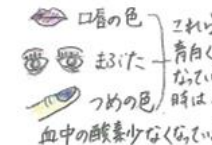 口唇の色
まぶた
つめの色
これら
青白く
なってい
時は
血中の酸素少なくなってい